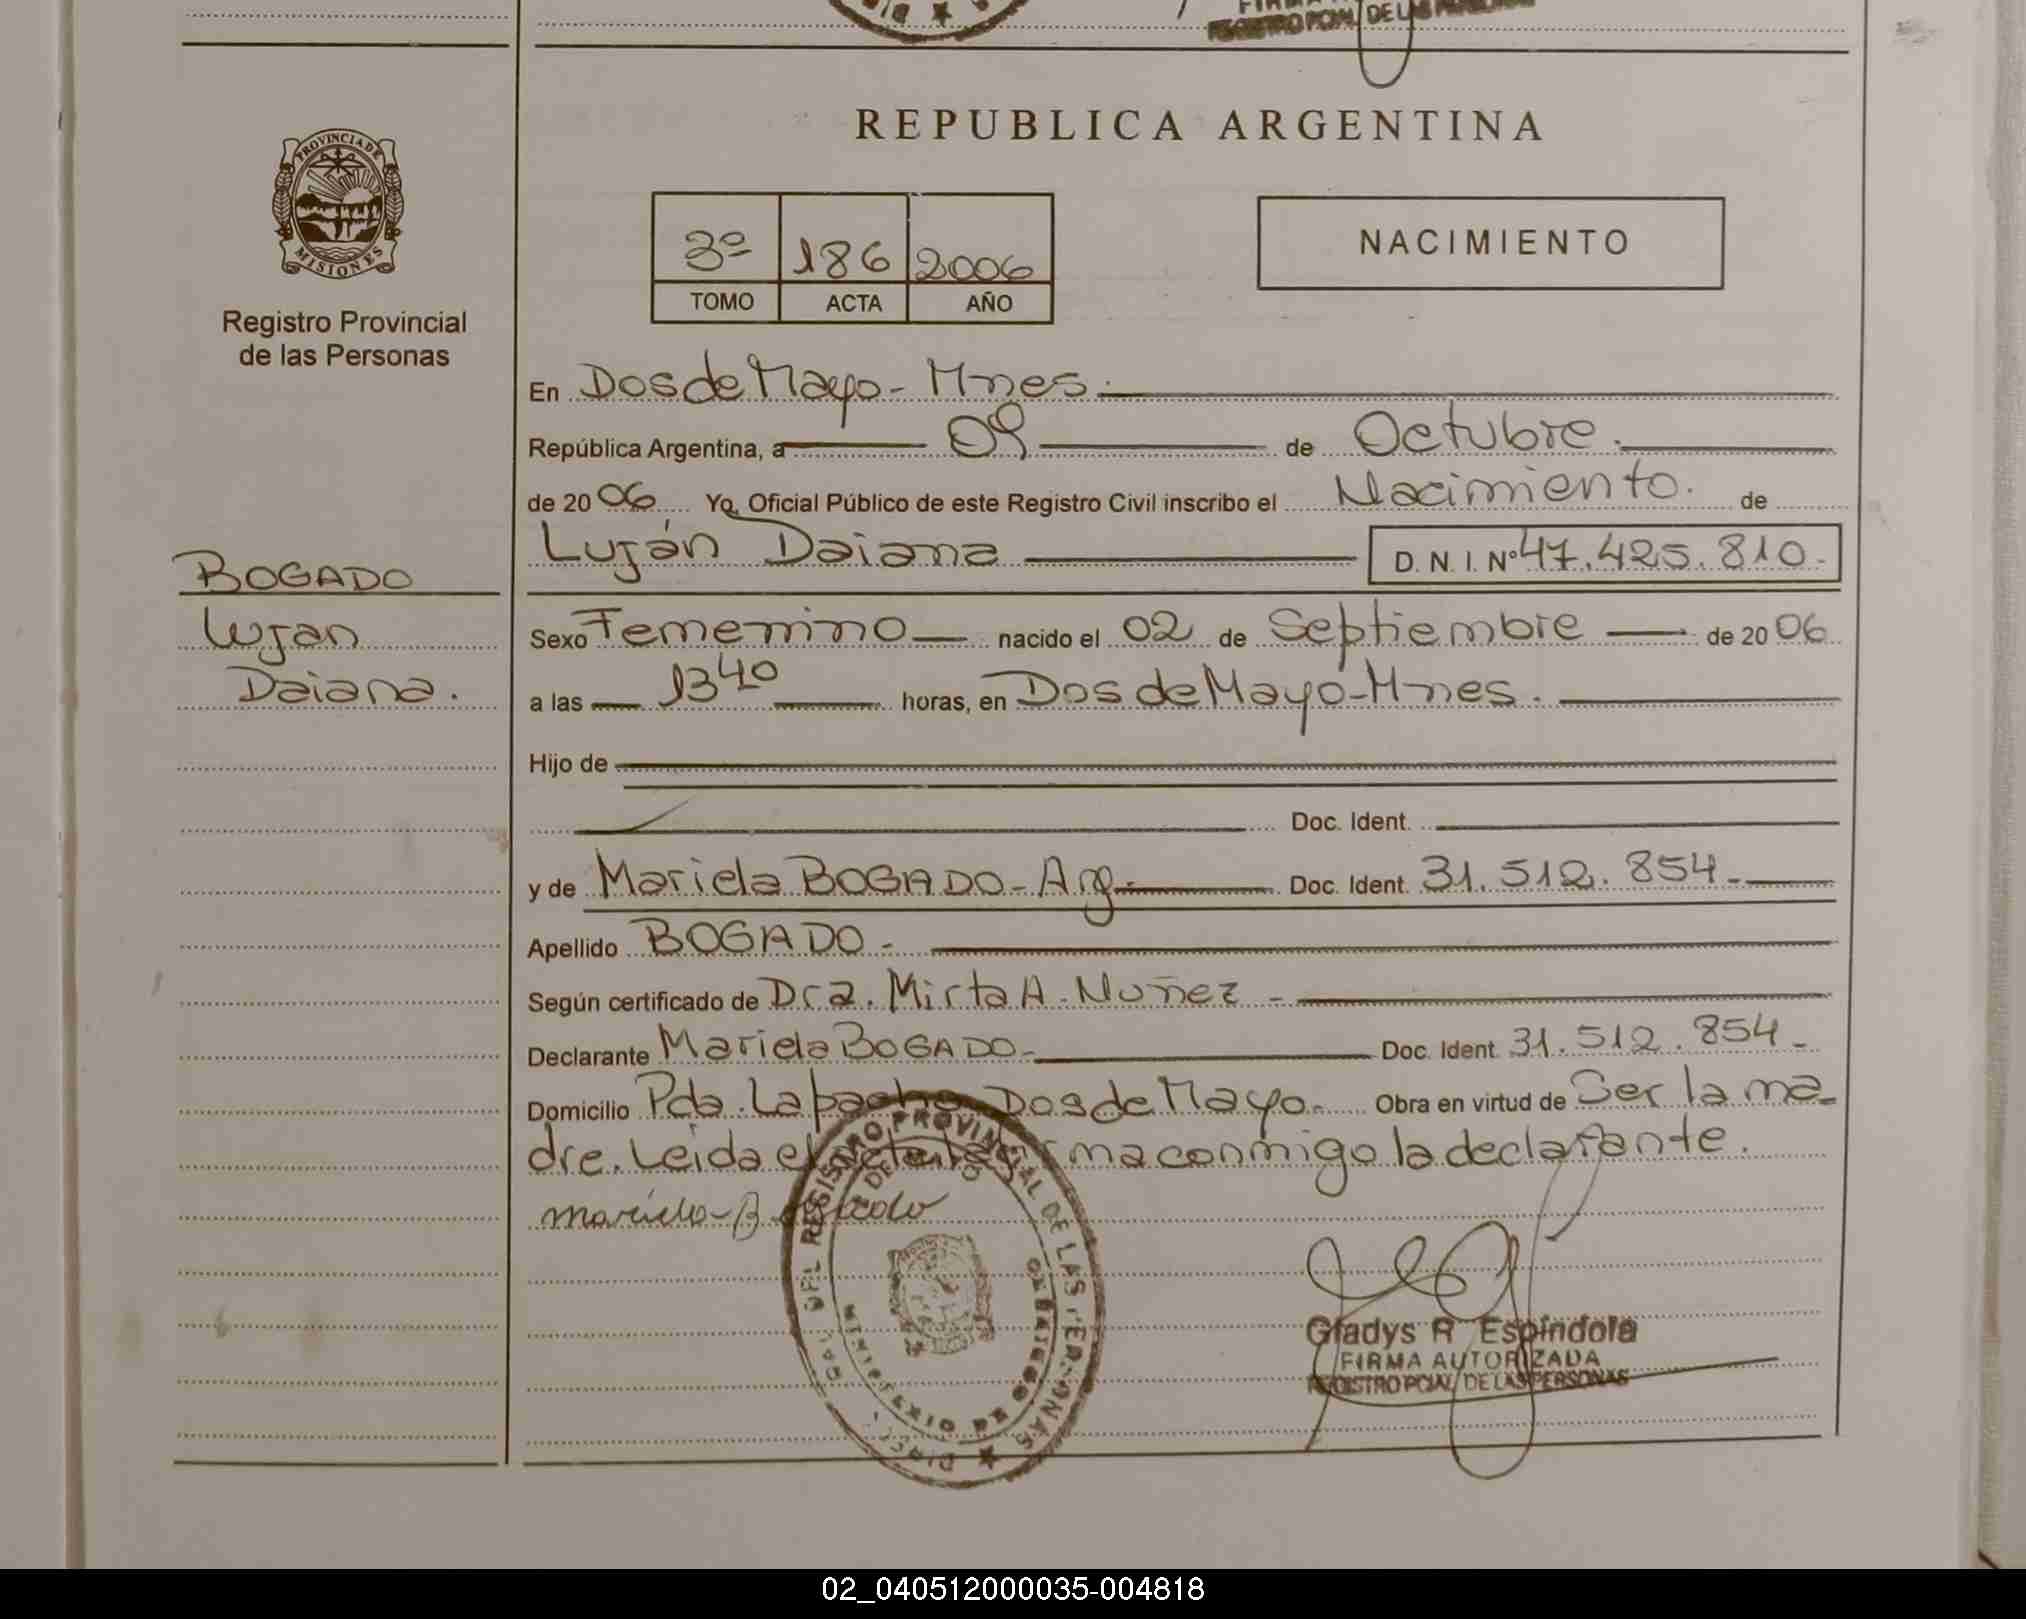 REGISTRO PCIAL DE LAS PERSONAS
PROVINCIA DE
MISIONES
Registro Provincial
de las Personas
BOGADO
Luján
Daiana.
REPUBLICA ARGENTINA
3º 186 2006
TOMO ACTA AÑO
NACIMIENTO
En Dos de Mayo - Mnes.
República Argentina, a 09 de Octubre.
de 20 06 Yo, Oficial Público de este Registro Civil inscribo el Nacimiento. de
Luján Daiana D. N. I. Nº 47.425.810.-
Sexo Femenino nacido el 02 de Septiembre de 20 06
a las 13 40 horas, en Dos de Mayo - Mnes.
Hijo de
Doc. Ident.
y de Mariela BOGADO - Arg.- Doc. Ident. 31.512.854.-
Apellido BOGADO.-
Según certificado de Dra. Mirta A. Nuñez -
Declarante Mariela BOGADO.- Doc. Ident. 31.512.854.-
Domicilio Pda. Lapacho Dos de Mayo. Obra en virtud de Ser la ma-
dre. Leida el acta la firma conmigo la declarante.
Mariela B
DIREC. GRAL DEL REGISTRO PROVINCIAL DE LAS PERSONAS
MINISTERIO DE GOBIERNO
Gladys R Espindola
FIRMA AUTORIZADA
REGISTRO PCIAL DE LAS PERSONAS
02_040512000035-004818